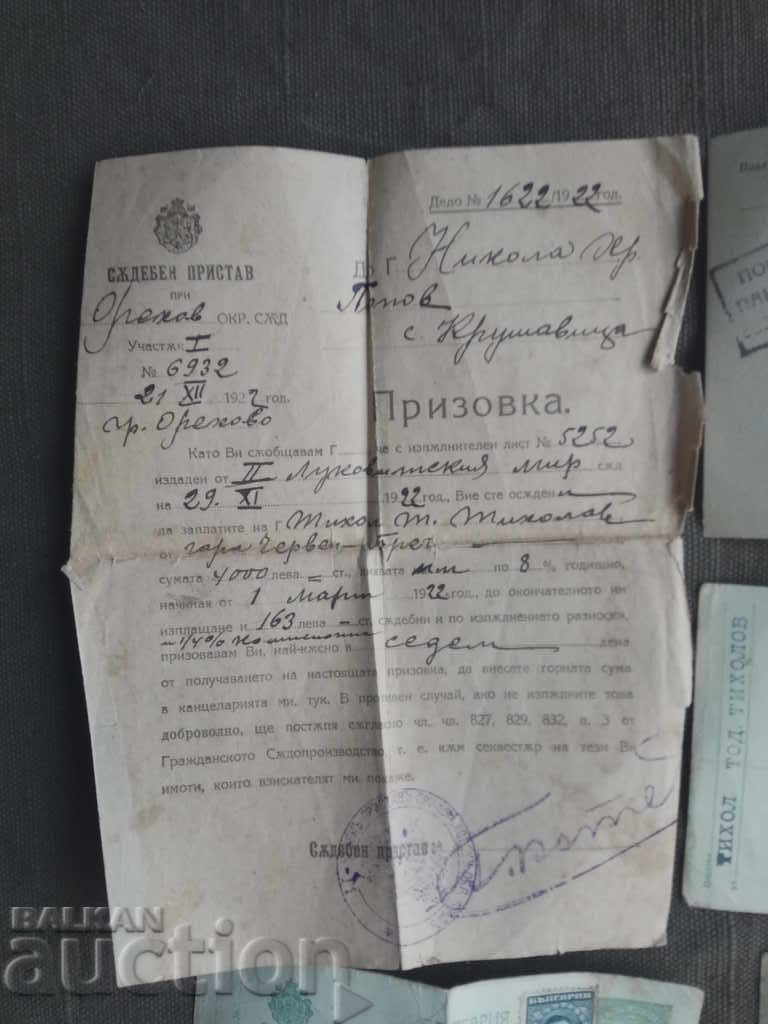 Дело № 1622/1922 год.
СѪДЕБЕН ПРИСТАВ
ПРИ
Орехов ОКР. СѪД
Участък I
№ 6932
21 XII 1922 год.
гр. Орехово
До Г. Никола Хр.
Попов
с. Крушавица
Призовка.
Като Ви съобщавам Г че с изпълнителен лист № 5252
издаден от II Луковитский мир. сѫд
на 29. XI 1922 год., Вие сте осжден
да заплатите на Г Тихол Т. Тихолов
от гара Червен-Брег
сумата 4000 лева = ст., лихвата им по 8 % годишно,
начиная от 1 Март 1922 год., до окончателното им
изплащане и 163 лева – ст. сѫдебни и по изпълнението разноски,
и 1/4%
призовавам Ви, най-кѫсно в седем дена
от получаването на настоящата призовка, да внесете горната сума
в канцеларията ми, тук. В противен случай, ако не изпълните това
доброволно, ще постѫпя съгласно чл. чл. 827, 829, 832, п. 3 от
Гражданското Сѫдопроизводство, т. е. към секвестър на тези Ви
имоти, които взискателят ми покаже.
Сѫдебен пристав:
ТИХОЛ ТОД. ТИХОЛОВ
БЪЛГАРИЯ
BALKAN
auction